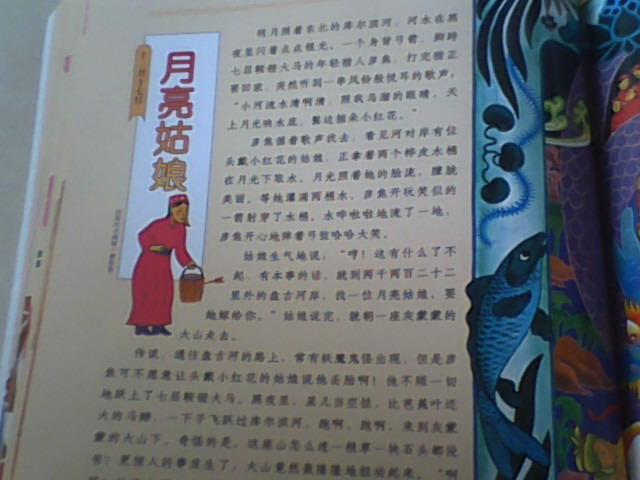 十一月十七日
月亮姑娘
明月照着东北的库尔滨河，河水在黑
夜里闪着点点银光。一个身背弓箭、脚跨
七层鞍鞯大马的年轻猎人彦焦，打完猎正
要回家，突然听到一串风铃般悦耳的歌声：
“小河流水清啊清，照我乌溜的眼睛，天
上月光映水底，鬓边插朵小红花。”
彦焦循着歌声找去，看见河对岸有位
头戴小红花的姑娘，正拿着两个桦皮水桶
在月光下取水。月光照着她的脸庞，朦胧
美丽。等她灌满两桶水，彦焦开玩笑似的
一箭射穿了水桶。水哗啦啦地流了一地，
彦焦开心地弹着弓弦哈哈大笑。
姑娘生气地说：“哼！这有什么了不
起，有本事的话，就到两千两百二十二
里外的盘古河岸，找一位月亮姑娘，要
她嫁给你。”姑娘说完，就朝一座灰蒙蒙的
大山走去。
传说，通往盘古河的路上，常有妖魔鬼怪出现，但是彦
焦可不愿意让头戴小红花的姑娘说他丢脸啊！他不顾一切
地跃上了七层鞍鞯大马。黑夜里，星儿当空挂，比芭蕉叶还
大的马蹄，一下子飞跃过库尔滨河，跑啊，跑啊，来到灰蒙
蒙的大山下。奇怪的是，这座山怎么连一根草一块石头都没
有？更惊人的事发生了，大山竟然轰隆隆地扭动起来。“啊